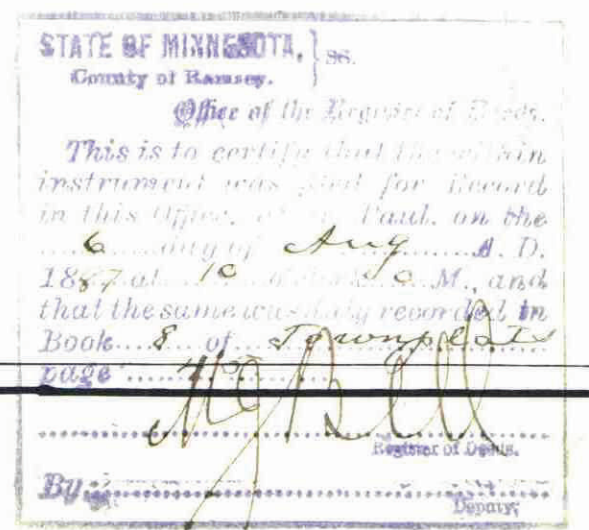 STATE OF MINNESOTA, } SS.
County of Ramsey.
Office of the Register of Deeds.
This is to certify that the within
instrument was filed for Record
in this Office, at St. Paul, on the
6 day of Aug A. D.
1887 at 10 o'clock M., and
that the same was duly recorded in
Book 8 of Townplats
page
Bell
Register of Deeds.
By
Deputy.